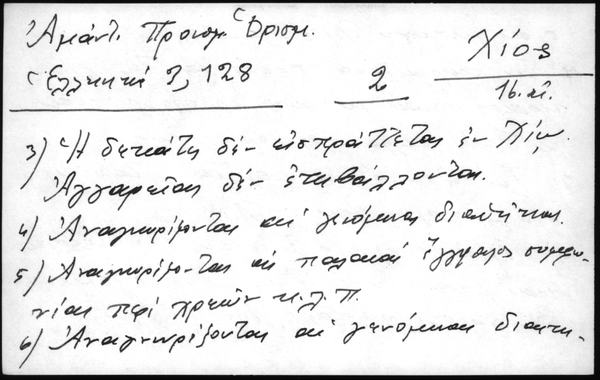 Ἀμάντ. Προνομ. Ὁρισμ.
Ἑλληνικά 9, 128
2
Χίος
16. αἰ.
3) Ἡ δεκάτη δέν εἰσπράττεται ἐν Χίῳ.
Ἀγγαρεῖαι δέν ἐπιβάλλονται.
4) Ἀναγνωρίζονται αἱ γενόμεναι διαθῆκαι.
5) Ἀναγνωρίζονται αἱ παλαιαί ἔγγραφοι συμφω-
νίαι περί χρεῶν κ.λ.π.
6) Ἀναγνωρίζονται αἱ γενόμεναι διαιτη-